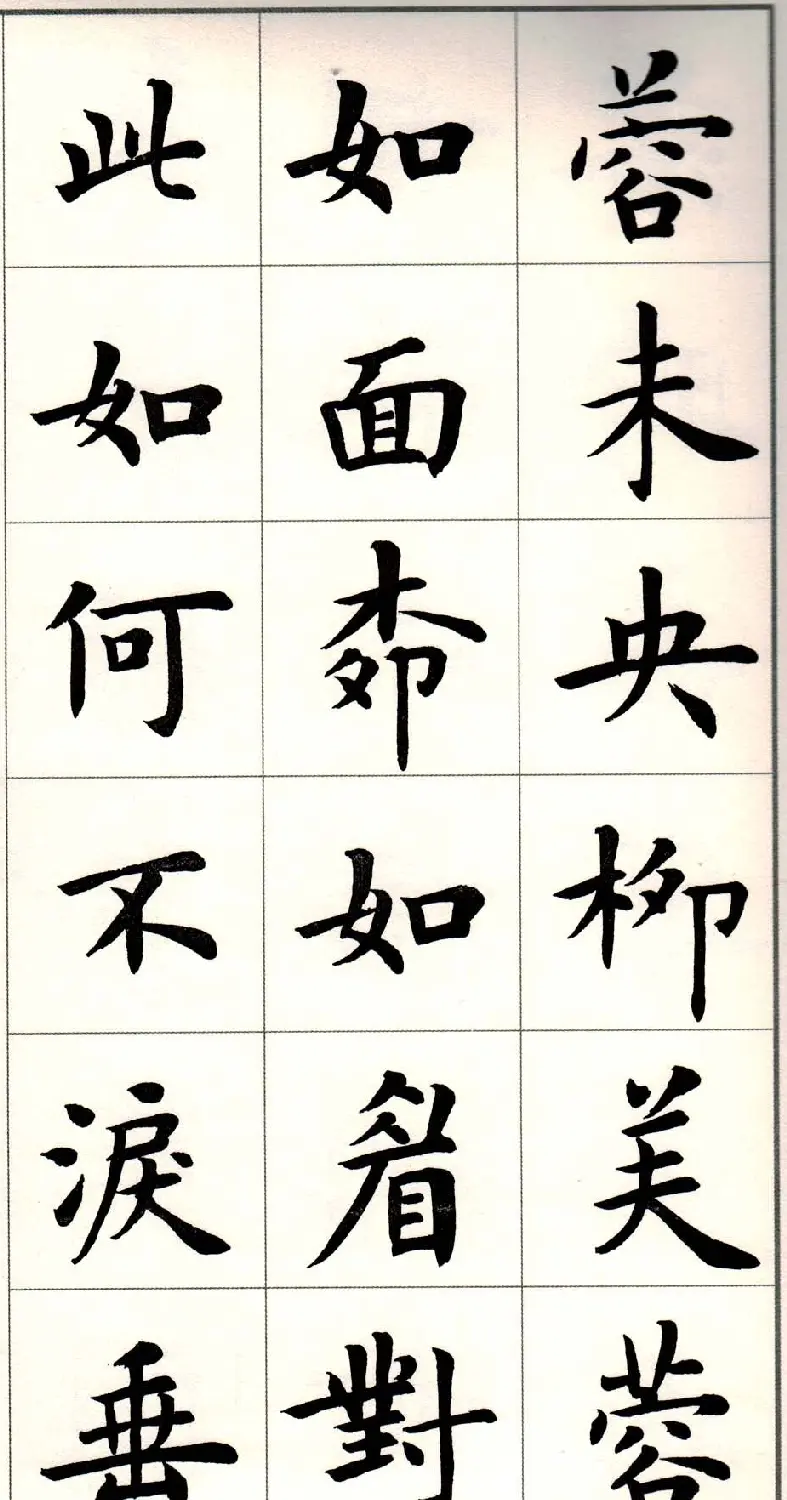 蓉未央柳芙蓉
如面柳如眉對
此如何不淚垂